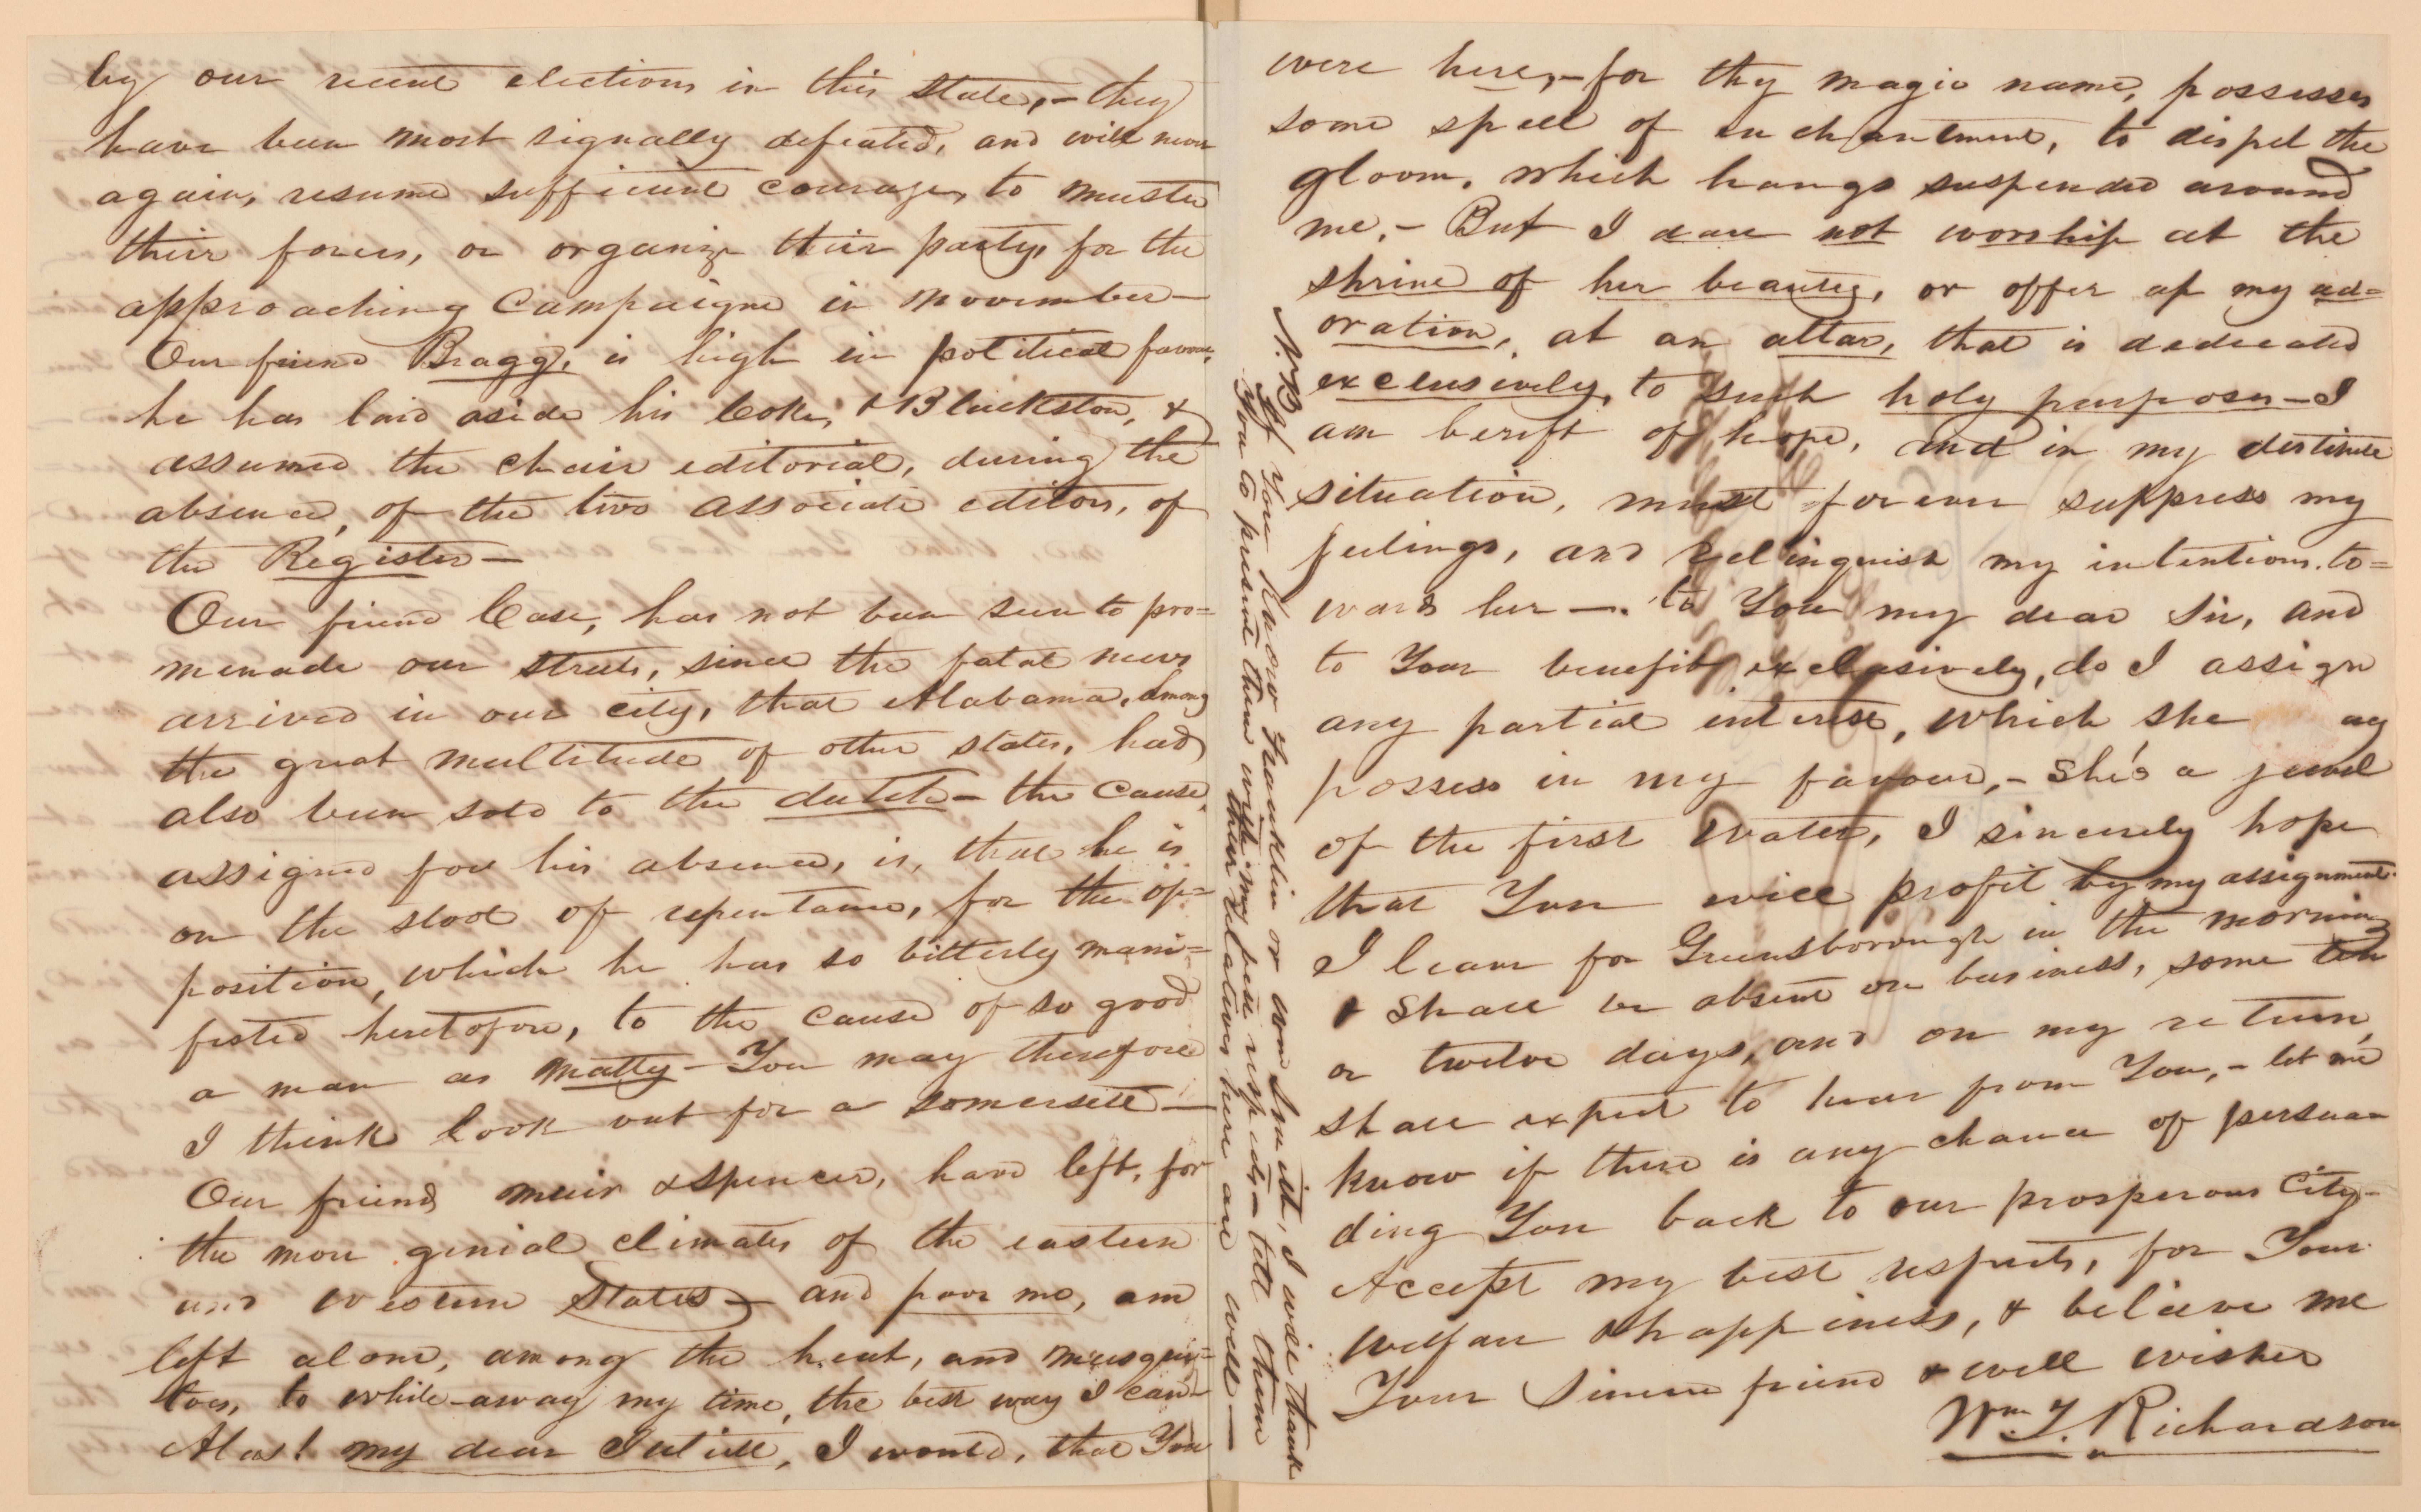 by our recent elections in this State, – they
have been most signally defeated, and will never
again, resume sufficient courage, to muster
their forces, or organize their party, for the
approaching Campaigne in November –
Our friend Bragg, is high in political favour,
he has laid aside his Coke, & Blackston, &
assumed the chair editorial, during the
absence, of the two associate editors, of
the Register –
Our friend Case, has not been seen to pro=
menade our streets, since the fatal news
arrived in our city, that Alabama, among
the great multitude of other states, had
also been sold to the dutch – the cause,
assigned for his absence, is, that he is
on the stool of repentance, for the op=
position, which he has so bitterly mani=
fested heretofore, to the cause of so good
a man as Matty – You may therefore
I think look out for a somersett –
Our friends Muir & Spencer, have left, for
the more genial climates of the eastern
and western States – and poor me, am
left alone, among the heat, and musqui=
toes, to while-away my time, the best way I can –
Alas! my dear Juliett, I would, that You
were here, – for thy magic name, possesses
some spell of enchantment, to dispel the
gloom, which hangs suspended around
me, – But I dare not worship at the
shrine of her beauty, or offer up my ad=
oration, at an altar, that is dedicated
exclusively, to such holy purposes – I
am bereft of hope, and in my destitute
situation, must forever suppress my
feelings, and relinquish my intentions to=
wards her –. to You my dear Sir, and
to Your benefit exclusively, do I assign
any partial interest, which she ay
possess in my favour, – she's a jewel
of the first water, I sincerely hope
that You will profit by my assignment.
I leave for Greensborough in the morning
& shall be absent on business, some ten
or twelve days, and on my return,
shall expect to hear from You, – let me
know if there is any chance of persua
ding You back to our prosperous City –
Accept my best respects, for Your
welfare & happiness, & believe me
Your Sincere friend & well wisher
Wm. T. Richardson
N.B. If You know Franklin or won Smith, I will thank
You to present them with my best respects – tell them
their relatives here are well –